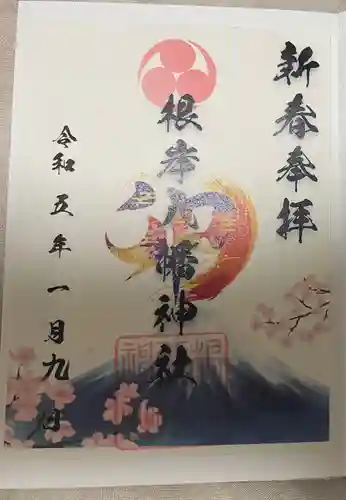 新春奉拝
根岸八幡神社
令和五年一月九日